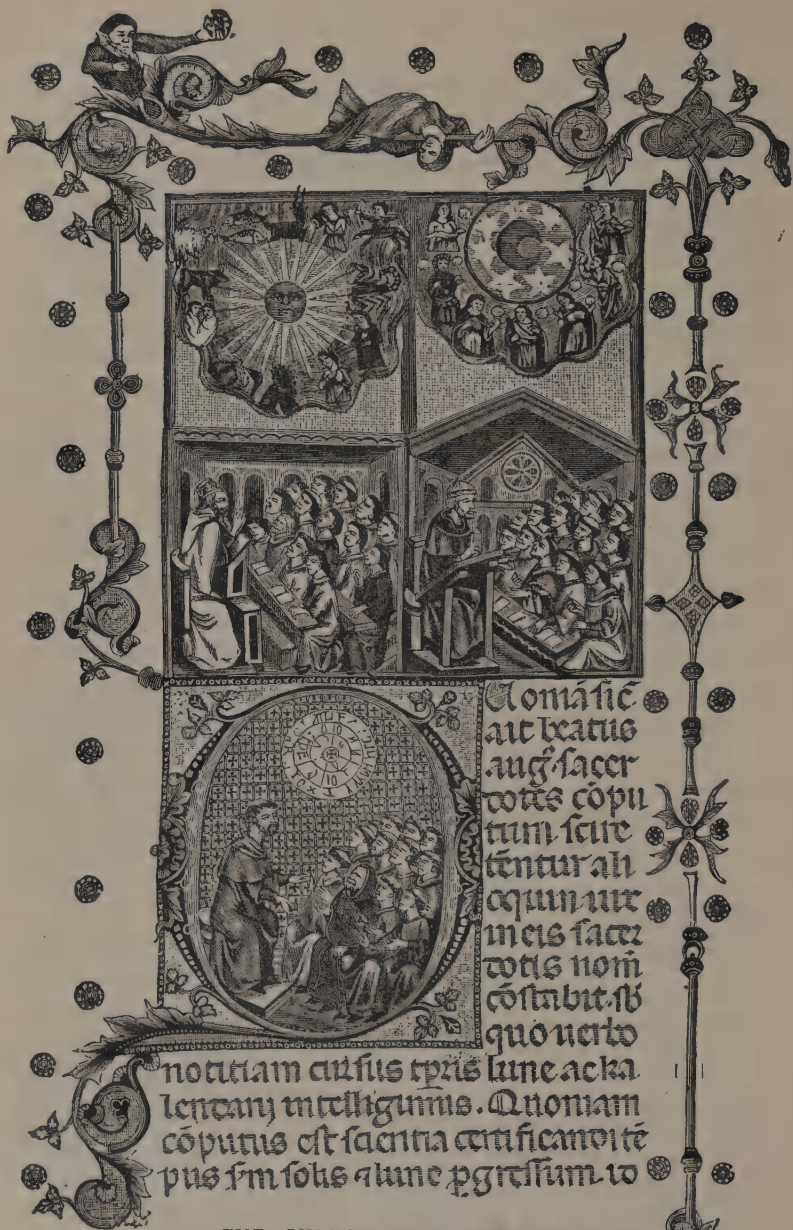 Uoniā sic̄
ait beatus
aug᷑. sacer
dotes cōpu
tum scire
tēntur ali
oquin uix
in eis sacer
dotis nom̄
cōstabit. sb̄
quo uerbo
notitiam cursus tp̄ris lune ac ka
lendarij intelligimus. Quoniam
cōputus est sciencia certificandi tē
pus s̄m solis ⁊ lune ꝓgressum. id